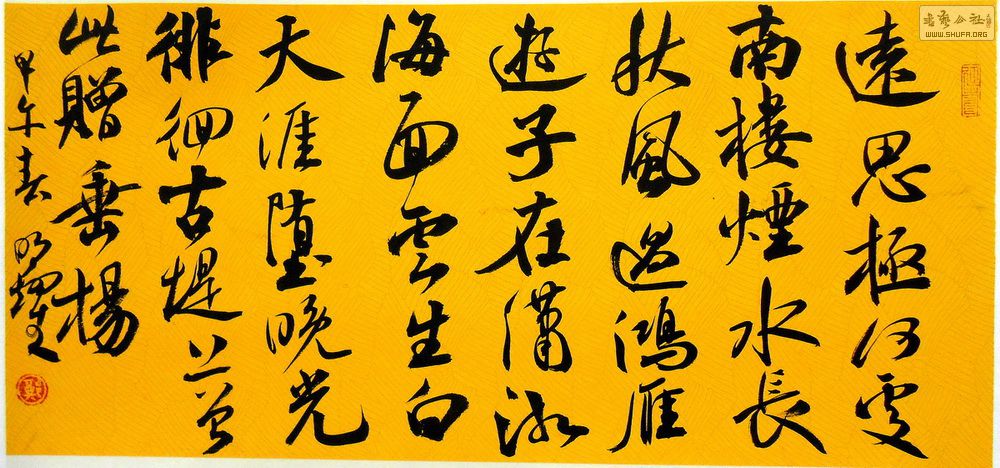 書藝公社
WWW.SHUFA.ORG
遠思極何處
南樓煙水長
秋風過鴻雁
遊子在瀟湘
海面雲生白
天涯墮晚光
徘徊古堤上曾
此贈垂楊
甲午春 明耀